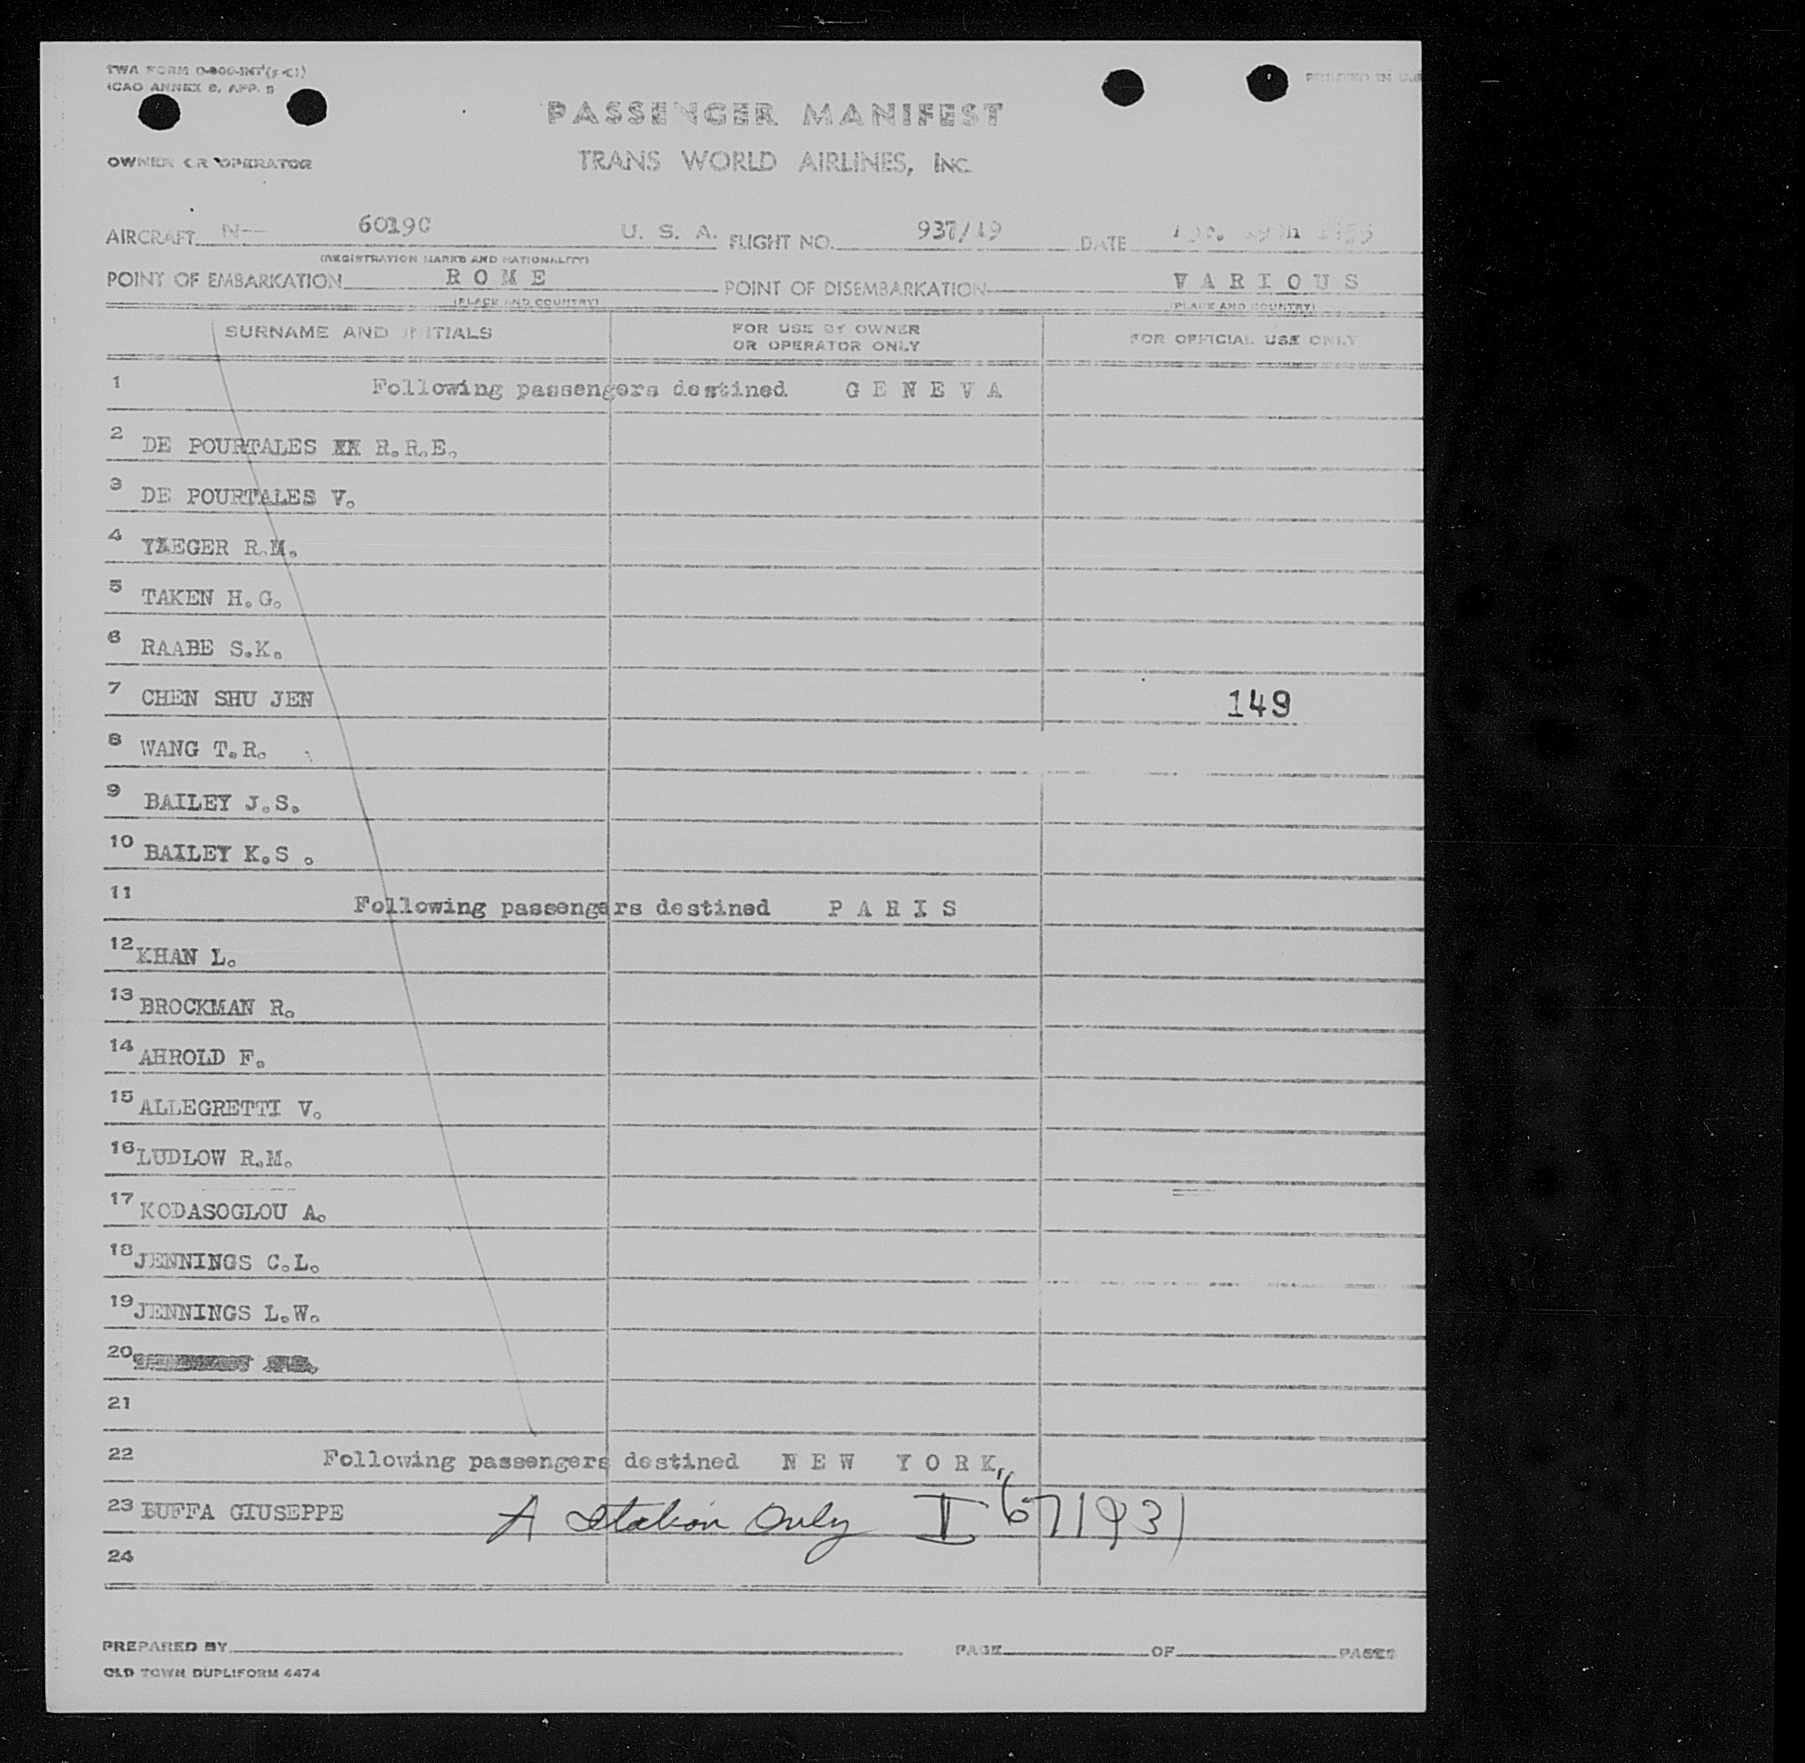 TWA FORM
ICAO ANNEX 9, APP. 5
PRINTED IN
PASSENGER MANIFEST
OWNER OR OPERATOR
TRANS WORLD AIRLINES, INC.
AIRCRAFT N-- 6019C U. S. A. FLIGHT NO. 937/19 DATE
(REGISTRATION MARKS AND NATIONALITY)
POINT OF EMBARKATION R O M E POINT OF DISEMBARKATION V A R I O U S
(PLACE AND COUNTRY) (PLACE AND COUNTRY)
SURNAME AND INITIALS FOR USE BY OWNER OR OPERATOR ONLY FOR OFFICIAL USE ONLY
1 Following passengers destined G E N E V A
2 DE POURTALES XX R.R.E.
3 DE POURTALES V.
4 YAEGER R.M.
5 TAKEN H.G.
6 RAABE S.K.
7 CHEN SHU JEN 149
8 WANG T.R.
9 BAILEY J.S.
10 BAILEY K.S .
11 Following passengers destined P A R I S
12 KHAN L.
13 BROCKMAN R.
14 AHROLD F.
15 ALLEGRETTI V.
16 LUDLOW R.M.
17 KODASOGLOU A.
18 JENNINGS C.L.
19 JENNINGS L.W.
20
21
22 Following passengers destined N E W Y O R K,
23 BUFFA GIUSEPPE A Station Only I 671931
24
PREPARED BY PAGE OF PAGES
OLD TOWN DUPLIFORM 4474